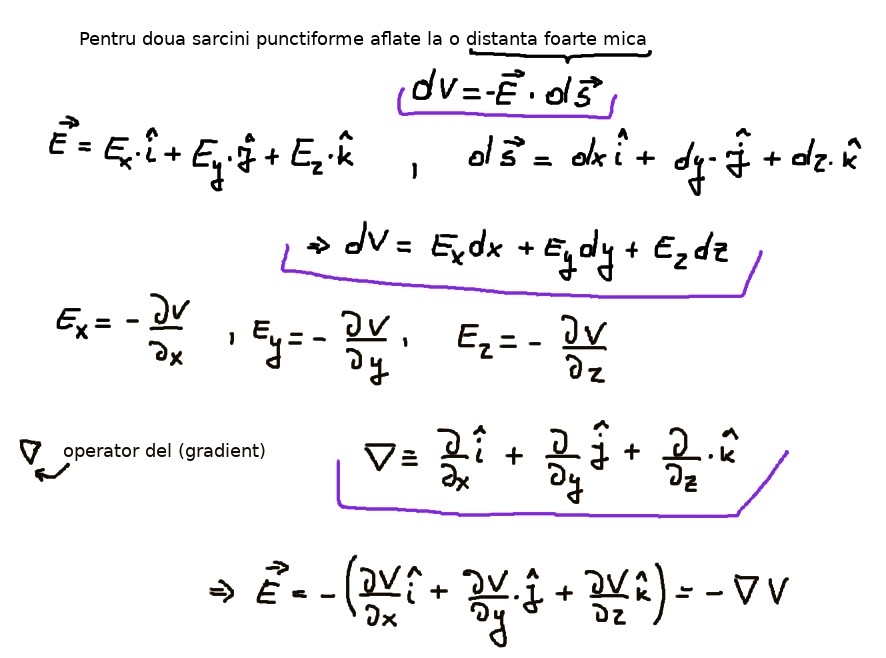 Pentru doua sarcini punctiforme aflate la o distanta foarte mica
dV = -E⃗ · ds⃗
E⃗ = Eₓ·î + E_y·ĵ + E_z·k̂ , ds⃗ = dx î + dy·ĵ + dz·k̂
⇒ dV = Eₓdx + E_y dy + E_z dz
Eₓ = - ∂V/∂x , E_y = - ∂V/∂y , E_z = - ∂V/∂z
∇ operator del (gradient) ∇ ≡ ∂/∂x î + ∂/∂y ĵ + ∂/∂z · k̂
⇒ E⃗ = - (∂V/∂x î + ∂V/∂y · ĵ + ∂V/∂z k̂) = - ∇V